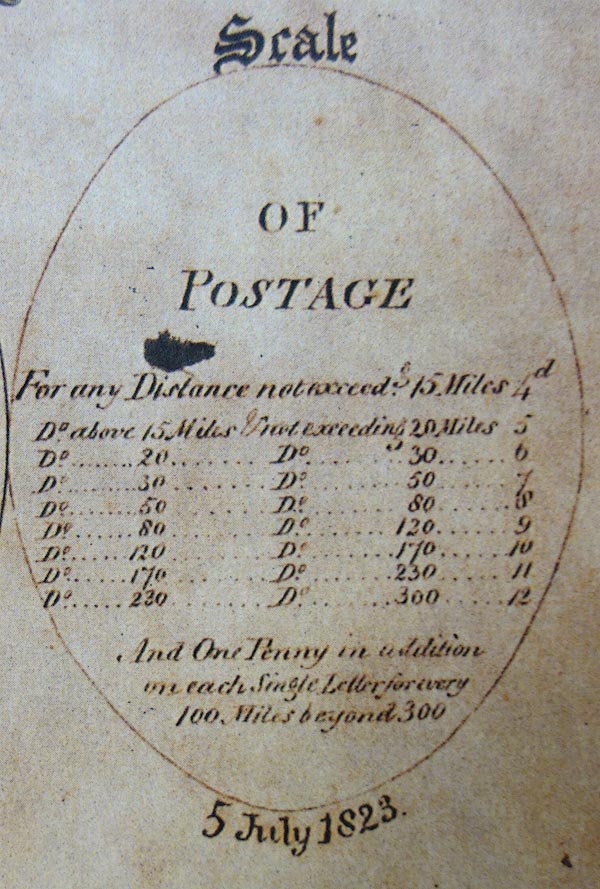 Scale
OF
POSTAGE
For any Distance not exceedg. 15 Miles 4d
Do. above 15 Miles & not exceeding 20 Miles 5
Do. ...... 20 ........ Do. ........ 30 ...... 6
Do. ...... 30 ........ Do. ........ 50 ...... 7
Do. ...... 50 ........ Do. ........ 80 ...... 8
Do. ...... 80 ........ Do. ........ 120 ...... 9
Do. ...... 120 ........ Do. ........ 170 ...... 10
Do. ...... 170 ........ Do. ........ 230 ...... 11
Do. ...... 230 ........ Do. ........ 300 ...... 12
And One Penny in addition
on each Single Letter for every
100 Miles beyond 300
5 July 1823.